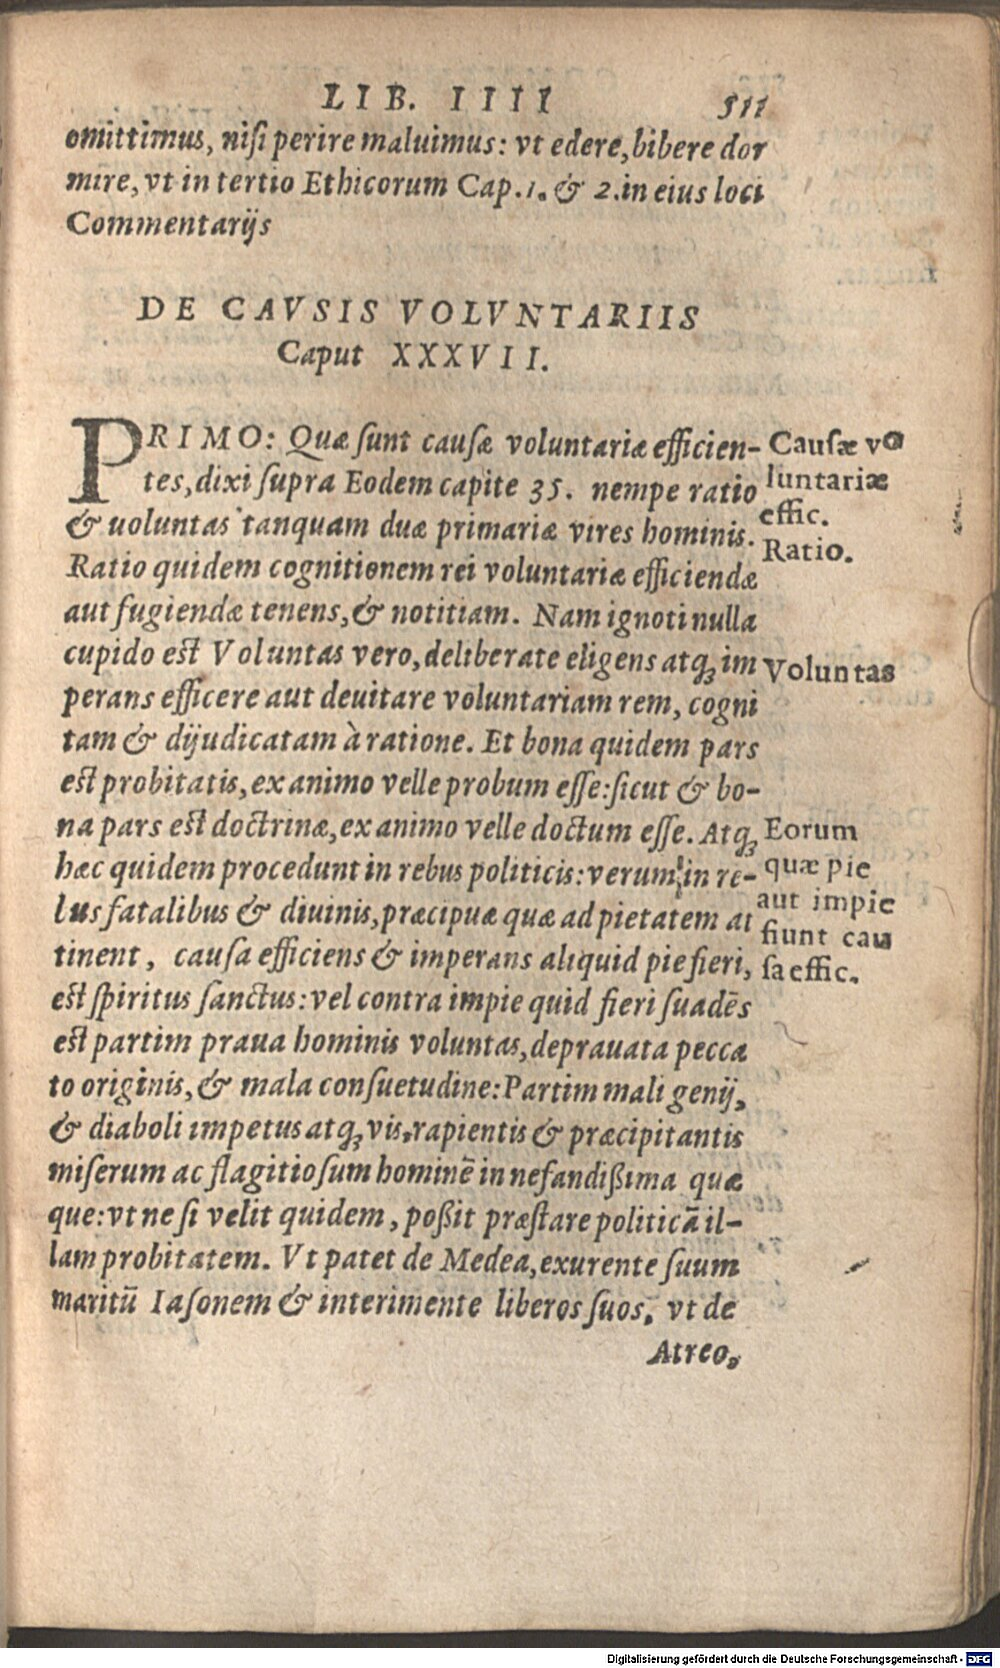 LIB. IIII 511
omittimus, nisi perire maluimus: vt edere, bibere dor
mire, vt in tertio Ethicorum Cap. 1. & 2. in eius loci
Commentarijs
DE CAVSIS VOLVNTARIIS
Caput XXXVII.
PRIMO: Quæ sunt causæ voluntariæ efficien-
tes, dixi supra Eodem capite 35. nempe ratio
& uoluntas tanquam duæ primariæ vires hominis.
Ratio quidem cognitionem rei voluntariæ efficiendæ
aut fugiendæ tenens, & notitiam. Nam ignoti nulla
cupido est Voluntas vero, deliberate eligens atq; im
perans efficere aut deuitare voluntariam rem, cogni
tam & dijudicatam à ratione. Et bona quidem pars
est probitatis, ex animo velle probum esse: sicut & bo-
na pars est doctrinæ, ex animo velle doctum esse. Atq;
hæc quidem procedunt in rebus politicis: verum in re-
lus fatalibus & diuinis, præcipuæ quæ ad pietatem at
tinent, causa efficiens & imperans aliquid pie fieri,
est spiritus sanctus: vel contra impie quid fieri suadēs
est partim praua hominis voluntas, deprauata pecca
to originis, & mala consuetudine: Partim mali genij,
& diaboli impetus atq; vis, rapientis & præcipitantis
miserum ac flagitiosum hominē in nefandißima quæ
que: vt ne si velit quidem, poßit præstare politicā il-
lam probitatem. Vt patet de Medea, exurente suum
maritū Iasonem & interimente liberos suos. vt de
Atreo.
Causæ vo
luntariæ
effic.
Ratio.
Voluntas
Eorum
quæ pie
aut impie
fiunt cau
sa effic.
Digitalisierung gefördert durch die Deutsche Forschungsgemeinschaft - DFG